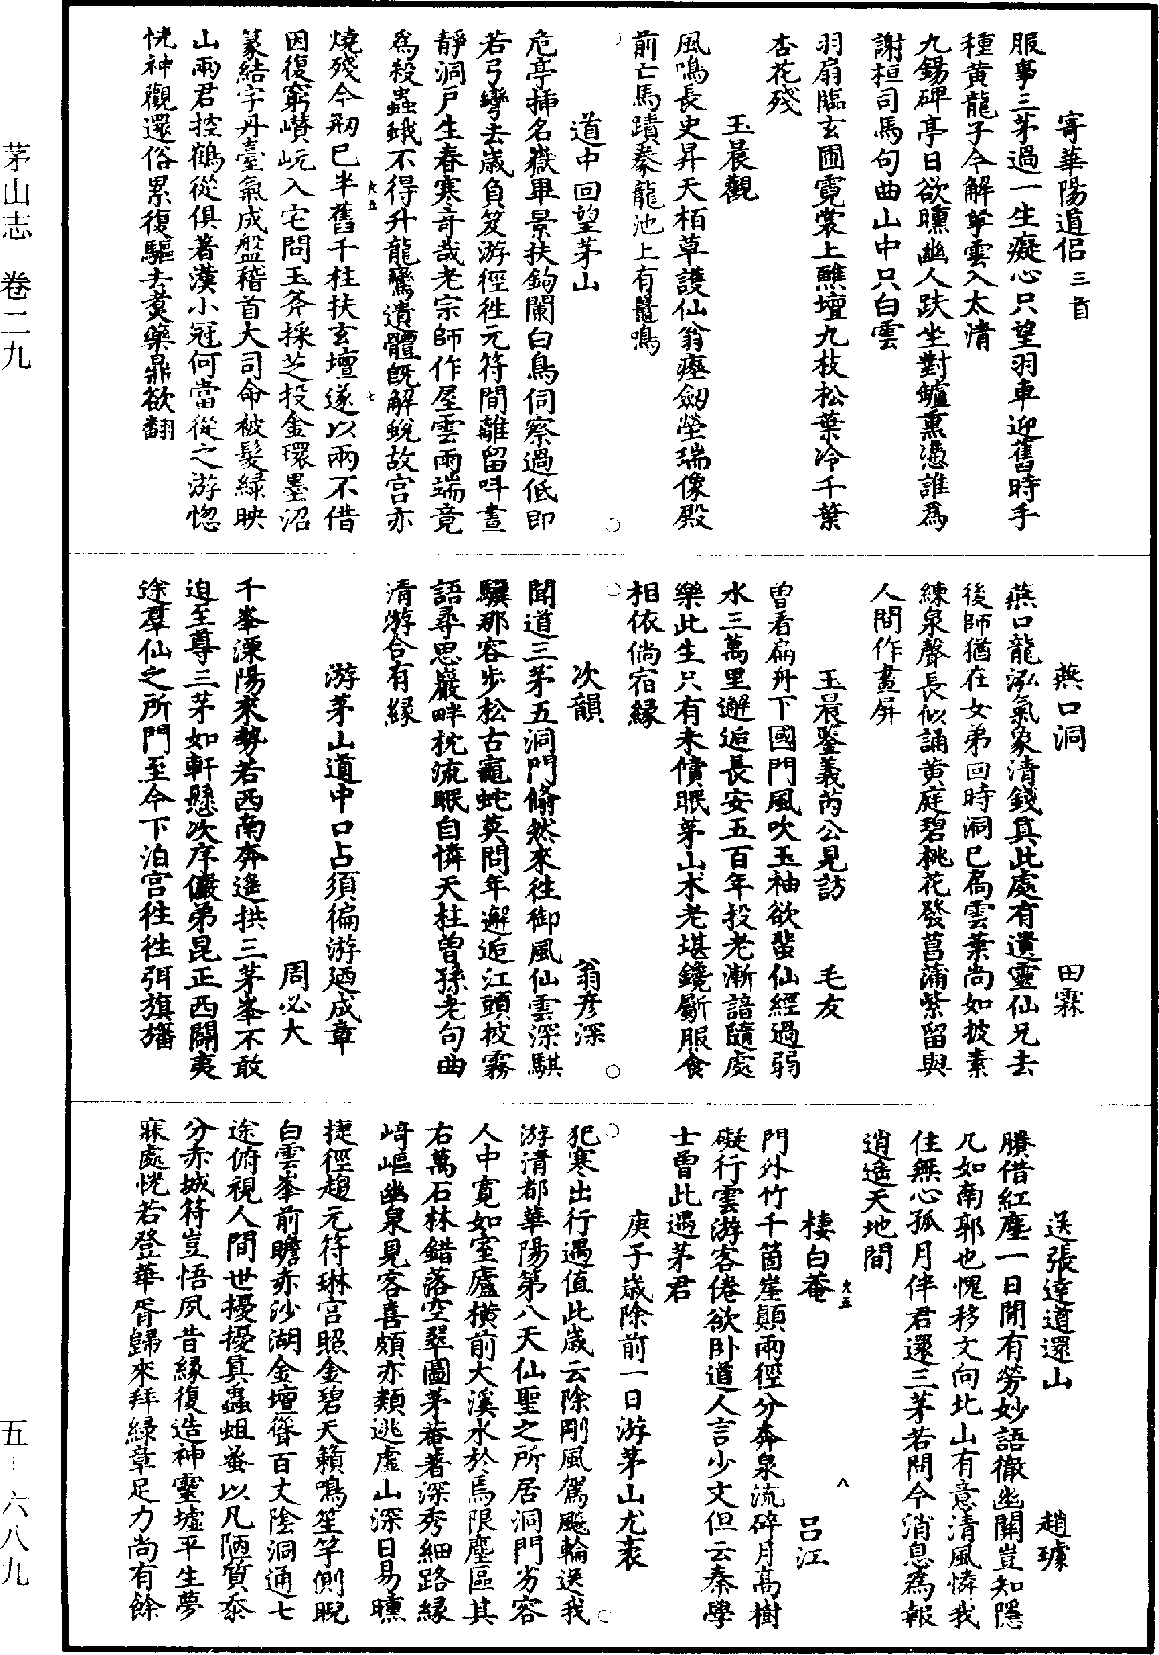 茅山志 卷二九
五·六八九
寄華陽道侶三首
服事三茅過一生癡心只望羽車迎舊時手
種黃龍子今解拏雲入太清
九錫碑亭日欲曛幽人趺坐對鑪熏憑誰爲
謝桓司馬句曲山中只白雲
羽扇臨玄圃霓裳上醮壇九枝松葉冷千葉
杏花殘
玉晨觀
風鳴長史昇天栢草護仙翁瘞劒塋瑞像殿
前亡馬蹟豢龍池上有鼉鳴
道中回望茅山
危亭揷名嶽畢景扶鉤闌白鳥伺察過低即
若弓彎去歲負笈游徑徃元符間離留呌晝
靜洞戶生春寒竒哉老宗師作屋雲雨端竟
爲殺蟲蛾不得升龍鸞遺體旣解蛻故宫亦
燒殘今剏已半舊千柱扶玄壇遂以兩不借
因復窮巑岏入宅問玉斧採芝投金環墨沼
篆結字丹臺氣成盤稽首大司命被髮綠映
山兩君控鶴從俱著漢小冠何當從之游惚
恍神觀還俗累復驅去爇藥鼎欲翻
燕口洞
田霖
燕口龍泓氣象清錢真此處有遺靈仙兄去
後師猶在女弟回時洞已扃雲葉尚如披素
練泉聲長似誦黄庭碧桃花發菖蒲紫留與
人間作畫屏
玉晨鑒義芮公見訪
毛友
曽看扁舟下國門風吹玉袖欲蜚仙經過弱
水三萬里邂逅長安五百年投老漸諳隨處
樂此生只有未償眠茅山术老堪鑱斸服食
相依倘宿緣
次韻
翁彦深
聞道三茅五洞門翛然來徃御風仙雲深騏
驥那容步松古龜蛇莫問年邂逅江頭披霧
語尋思巖畔枕流眠自憐天柱曽孫老句曲
清游合有緣
游茅山道中口占須徧游廼成章
周必大
千峯溧陽來勢若西南奔遥拱三茅峯不敢
迫至尊三茅如軒懸次序儼弟昆正西闢夷
途羣仙之所門至今下泊宫徃徃弭旗旛
送張達道還山
趙㻯
賸借紅塵一日閒有勞妙語徹幽關豈知隱
几如南郭也愧移文向北山有意清風憐我
住無心孤月伴君還三茅若問今消息爲報
逍遥天地間
棲白菴
吕江
門外竹千箇崖顛兩徑分奔泉流碎月高樹
礙行雲游客倦欲卧道人言少文但云秦學
士曽此遇茅君
庚子歲除前一日游茅山尤袤
犯寒出行遇值此歲云除剛風駕飈輪送我
游清都華陽第八天仙聖之所居洞門劣容
人中寛如室廬横前大溪水於焉限塵區其
右萬石林錯落空翠圖茅菴著深秀細路緣
﨑嶇幽泉見客喜頗亦類逃虚山深日易曛
捷徑趨元符琳宫照金碧天籟鳴笙竽側睨
白雲峯前瞻赤沙湖金壇聳百丈陰洞通七
途俯視人間世擾擾真蟲蛆蚤以凡陋質忝
分赤城符豈悟夙昔緣復造神靈墟平生夢
寐處恍若登華胥歸來拜綠章足力尚有餘